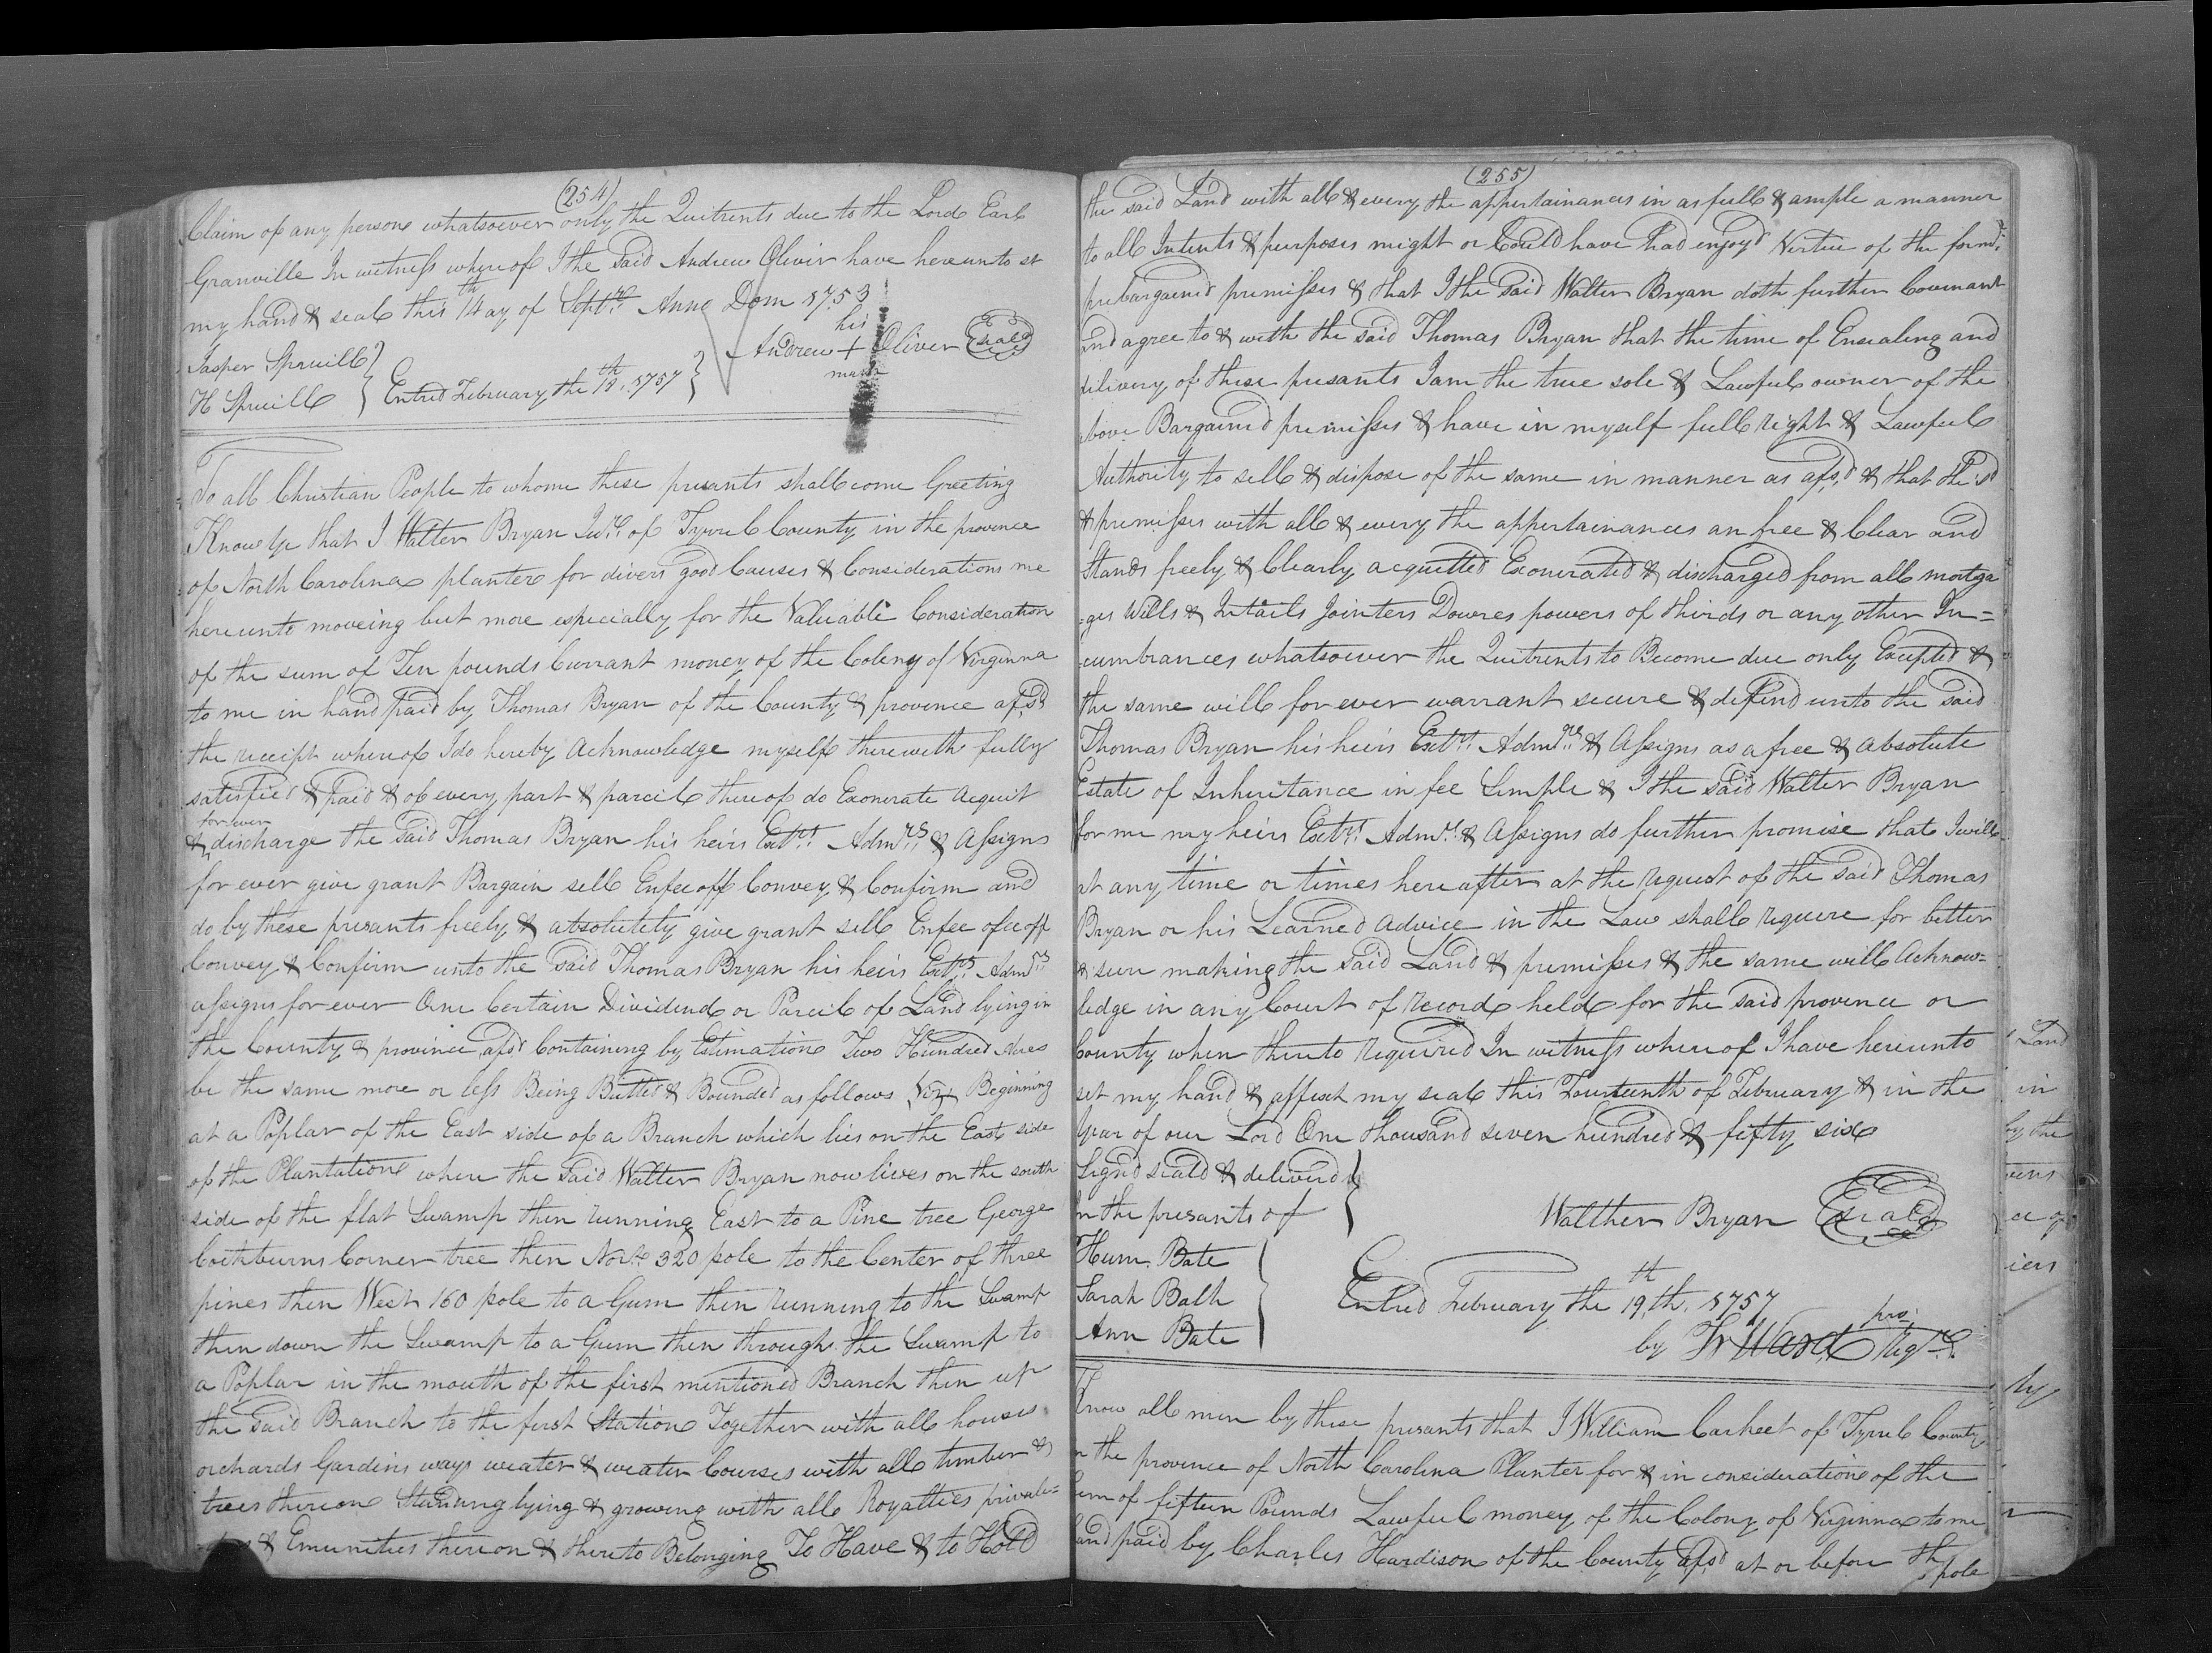 (254)
Claim of any persone whatsoever only the Quitrents due to the Lord Earl
Granville In witness whereof I the Said Andrew Oliver have hereunto st
my hand & seal this 14th ay of Septr. Anno Dom 1753
his
Andrew + Oliver Seal
mark
Jasper Spruill
H Spruill } Entred February the 18th. 1757 }
To all Christian People to whome these presants shall come Greeting
Know ye that I Walter Bryan Junr. of Tyrrel County in the province
of North Carolina planter for divers good Causes & Considerations me
hereunto moveing but more especially for the Valuable Consideration
of the sum of Ten pounds Currant money of the Coleny of Virginna
to me in hand paid by Thomas Bryan of the County & province afsd
the receipt whereof I do hereby Acknowledge myself therewith fully
satisfied & paid & of every part & parcil thereof do Exonerate Acquit
for ever
& discharge the Said Thomas Bryan his heirs Exetrs. Admrs. & Assigns
for ever give grant Bargain sell Enfeeoff Convey & Confirm and
do by these presants freely & absolutely give grant sell Enfee ofeoff
Convey & Confirm unto the Said Thomas Bryan his heirs Exetrs. Admrs.
assigns for ever One Certain Dividend or Parcil of Land lying in
the County & province afsd Containing by Estimation Two Hundred Acres
be the same more or less Being Butted & Bounded as follows Viz Beginning
at a Poplar of the East side of a Branch which lies on the East side
of the Plantation where the Said Walter Bryan now lives on the south
side of the flat Swamp then running East to a Pine tree George
Cockburns Corner tree then North 320 pole to the Center of three
pines then West 160 pole to a Gum then running to the Swamp
then down the Swamp to a Gum then through the Swamp to
a Poplar in the mouth of the first mentioned Branch then up
the said Branch to the first Station Together with all houses
orchards Gardins ways weater & weater Courses with all timber &
trees thereon Standing lying & growing with all Royalties privale=
& Emunities thereon & thereto Belonging To Have & to Hold
(255)
the said Land with all & every the appertainances in as full & ample a manner
to all Intents & purposes might or Could have had enjoyd Vertue of the formr.
prebargained premisses & that I the Said Walter Bryan doth further Covenant
and agree to & with the Said Thomas Bryan that the time of Ensealing and
delivery of these presants I am the true sole & Lawful owner of the
above Bargained premisses & have in myself full right & Lawful
Authority to sell & dispose of the same in manner as afsd & that the sd
& premisses with all & every the appertainances an free & Clear and
Stands freely & Clearly acquitted Exonerated & discharged from all mortga
ges Wills & Intails Jointers Dowres powers of thirds or any other In=
cumbrances whatsoever the Quitrents to Become due only Excepted &
the same will for ever warrant secure & defend unto the said
Thomas Bryan his heirs Exetrs. Admrs & Assigns as a free & absolute
Estate of Inheritance in fee Simple & I the Said Walter Bryan
for me my heirs Exetrs. Admrs. & Assigns do further promise that I will
at any time or times hereafter at the request of the Said Thomas
Bryan or his Learned advice in the Law shall require for better
& sure making the said Land & premisses & the same will Acknow=
ledge in any Court of record held for the said province or
County when thereto required In witness whereof I have hereunto
set my hand & affixt my seal this Fourteenth of February & in the
Year of our Lord One thousand seven hundred & fifty six
Signd seald & deliverd
In the presants of }
Walther Bryan Seal
Hum. Bate
Sarah Balh
Ann Bate
Entred February the 19th. th 1757
by Fr Ward pro. Regr.
Know all men by these presants that I William Carkeet of Tyrrel County
in the province of North Carolina Planter for & in consideration of the
sum of fifteen Pounds Lawful money of the Colony of Virginna to me
hand paid by Charles Hardison of the County afsd at or before th
pole
Land
in
by the
ly